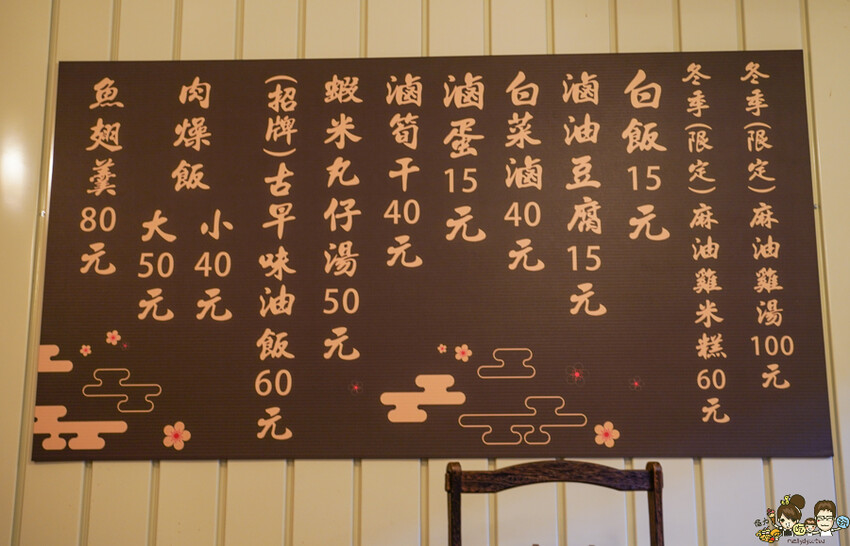 冬季(限定)麻油雞湯100元
冬季(限定)麻油雞米糕60元
白飯15元
滷油豆腐15元
白菜滷40元
滷蛋15元
滷筍干40元
蝦米丸仔湯50元
(招牌)古早味油飯60元
肉燥飯
小40元
大50元
魚翅羹80元